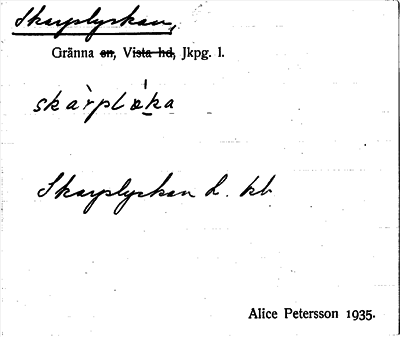 Skarplyckan,
Gränna sn, Vista hd, Jkpg. l.
skàrplɷ́ka
Skarplyckan L. kb
Alice Petersson 1935.